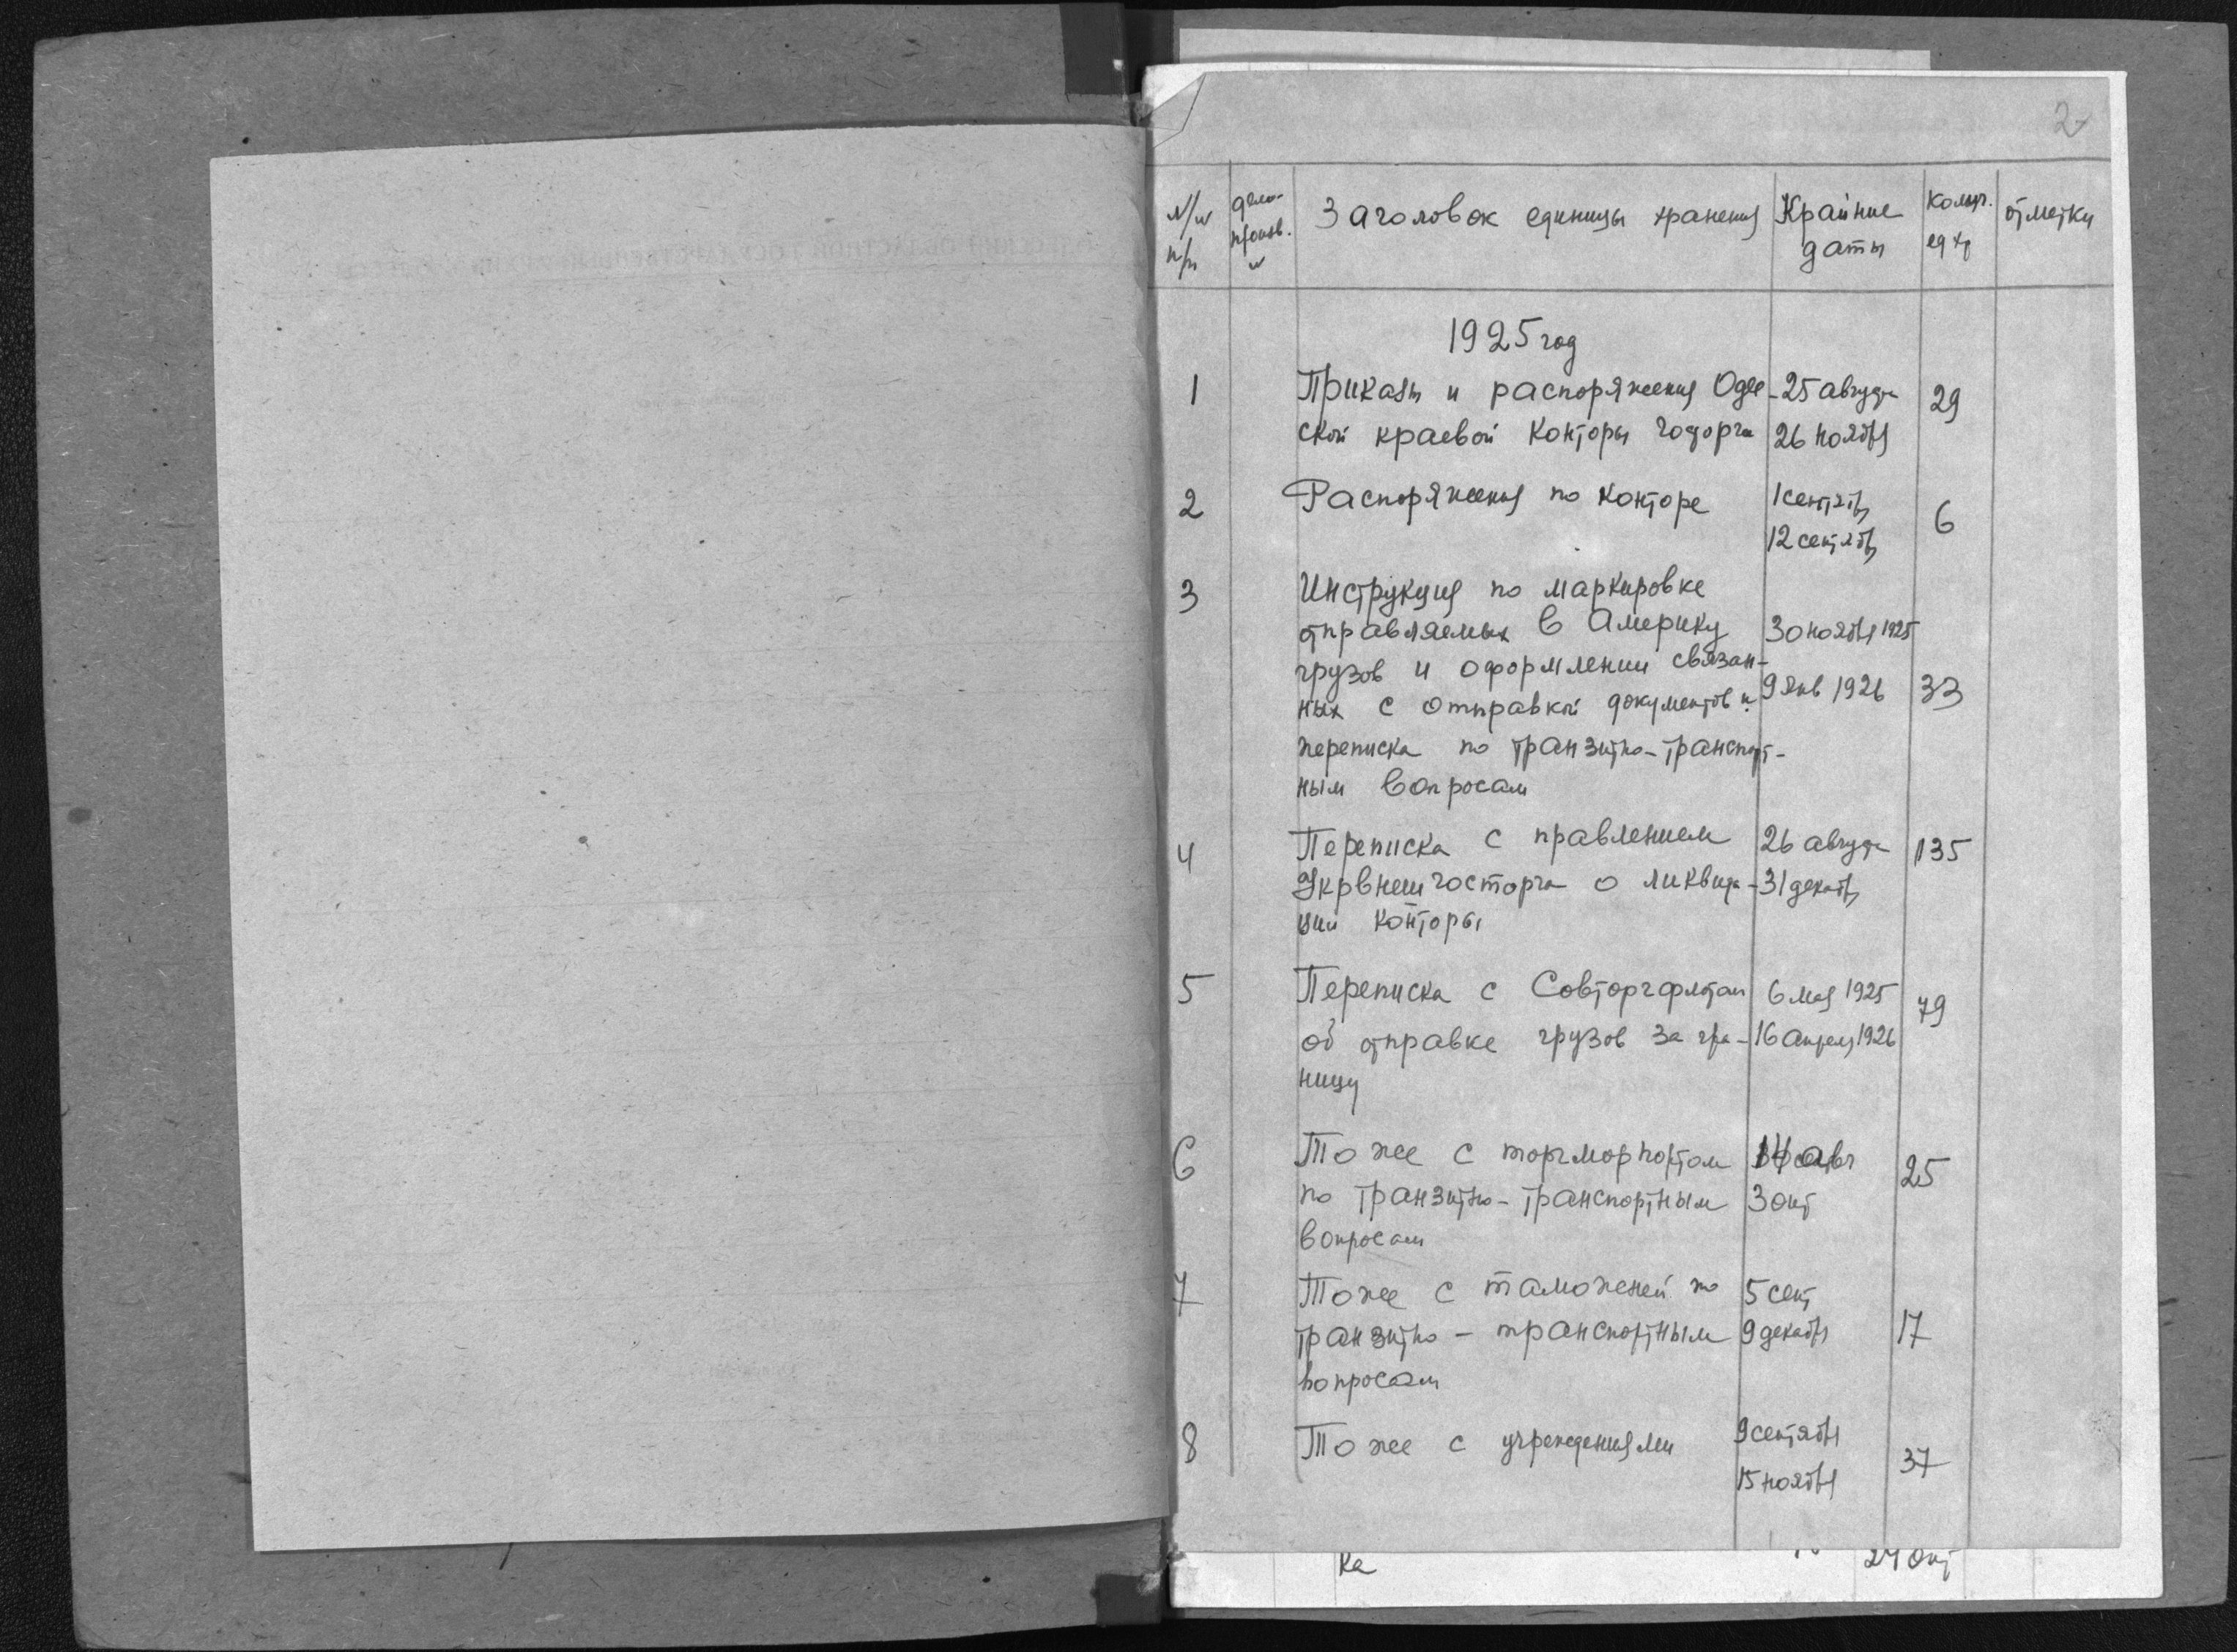 2
N/N п/п дело-произв. N Заголовок единицы хранения Крайние даты колич. ед хр отметки
1925 год
1 Приказы и распоряжения Одес- 25 августа 29
ской краевой Конторы Госторга 26 ноября
2 Распоряжения по конторе 1 сентябр 6
12 сентябр
3 Инструкция по маркировке
отправляемых в Америку 30 ноября 1925
грузов и оформлении связан-
ных с отправкой документов и 9 янв 1926 33
переписка по транзитно-транспорт-
ным вопросам
4 Переписка с правлением 26 августа 135
Укрвнешгосторга о ликвида- 31 декабр
ции конторы
5 Переписка с Совторгфлотом 6 мая 1925 79
об отправке грузов за гра- 16 апреля 1926
ницу
6 То же с торгморпортом 14 авг 25
по транзитно-транспортным 3 окт
вопросам
7 То же с таможней по 5 сент
транзитно-транспортным 9 декабря 17
вопросам
8 То же с учреждениями 9 сентября 37
15 ноября
ка 24 окт